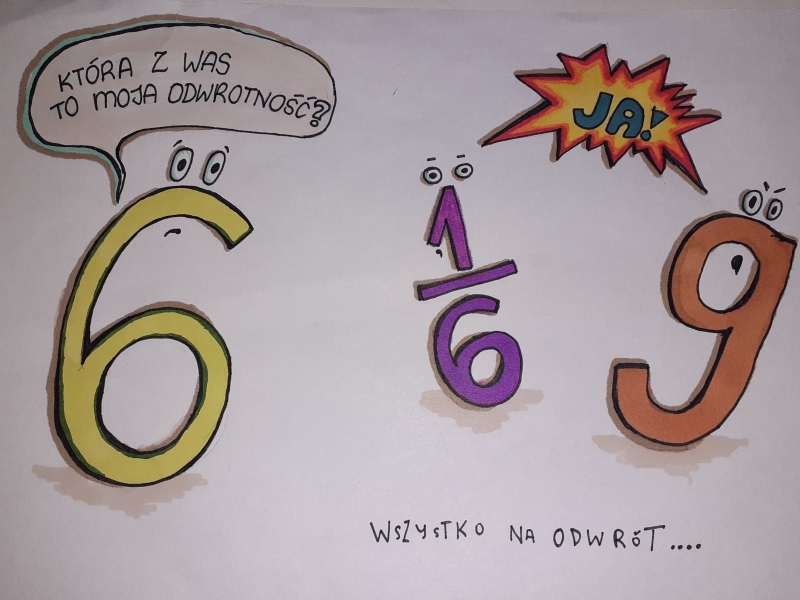 KTÓRA Z WAS
TO MOJA ODWROTNOŚĆ?
JA!
6
1
6
9
WSZYSTKO NA ODWRÓT....